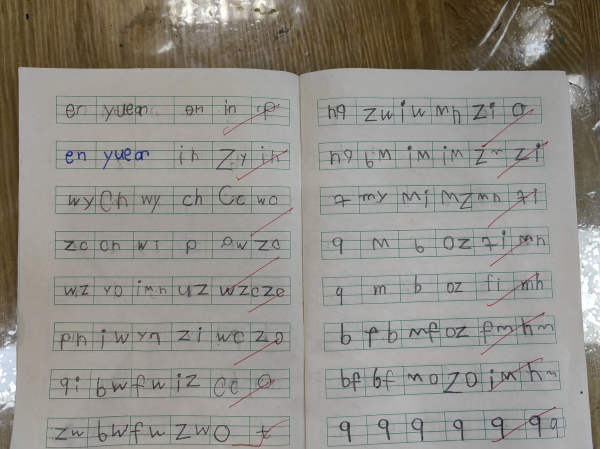 en yuean on in p
en yuean in Zy in
wy Ch wy ch Cc wo
zc on wi p ow zo
wz yo imn uz wzczc
pn iw yn zi wc zo
qi bw fw iz Cc o
zn bw fn zw O t
hq zw iw mn zi a
hq qm im im zn zi
7 my mi mz mn 7i
q m b oz 7i mn
q m b oz fi mh
b fb mf oz fm hm
bf bf mo zo im hm
q q q q q qq